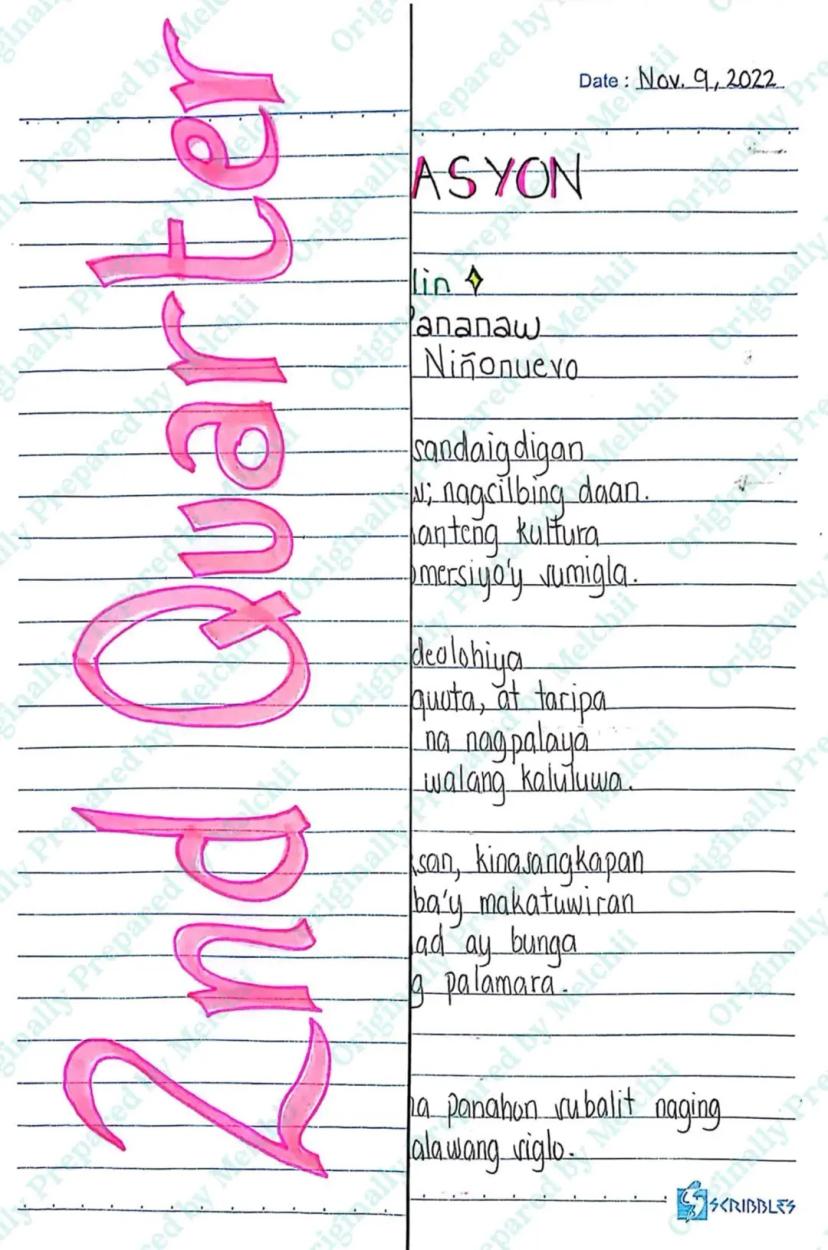 2nd Quarter
Date : Nov. 9, 2022
ASYON
lin
Pananaw
Niñonuevo
sandaigdigan
w; nagsilbing daan.
anteng kultura
omersiyo'y sumigla.
deolohiya
quota, at taripa
na nagpalaya
walang kaluluwa.
san, kinasangkapan
ba'y makatuwiran
ad ay bunga
g palamara.
na panahon subalit naging
alawang siglo.
SCRIBBLES
Originally Prepared by Melchii